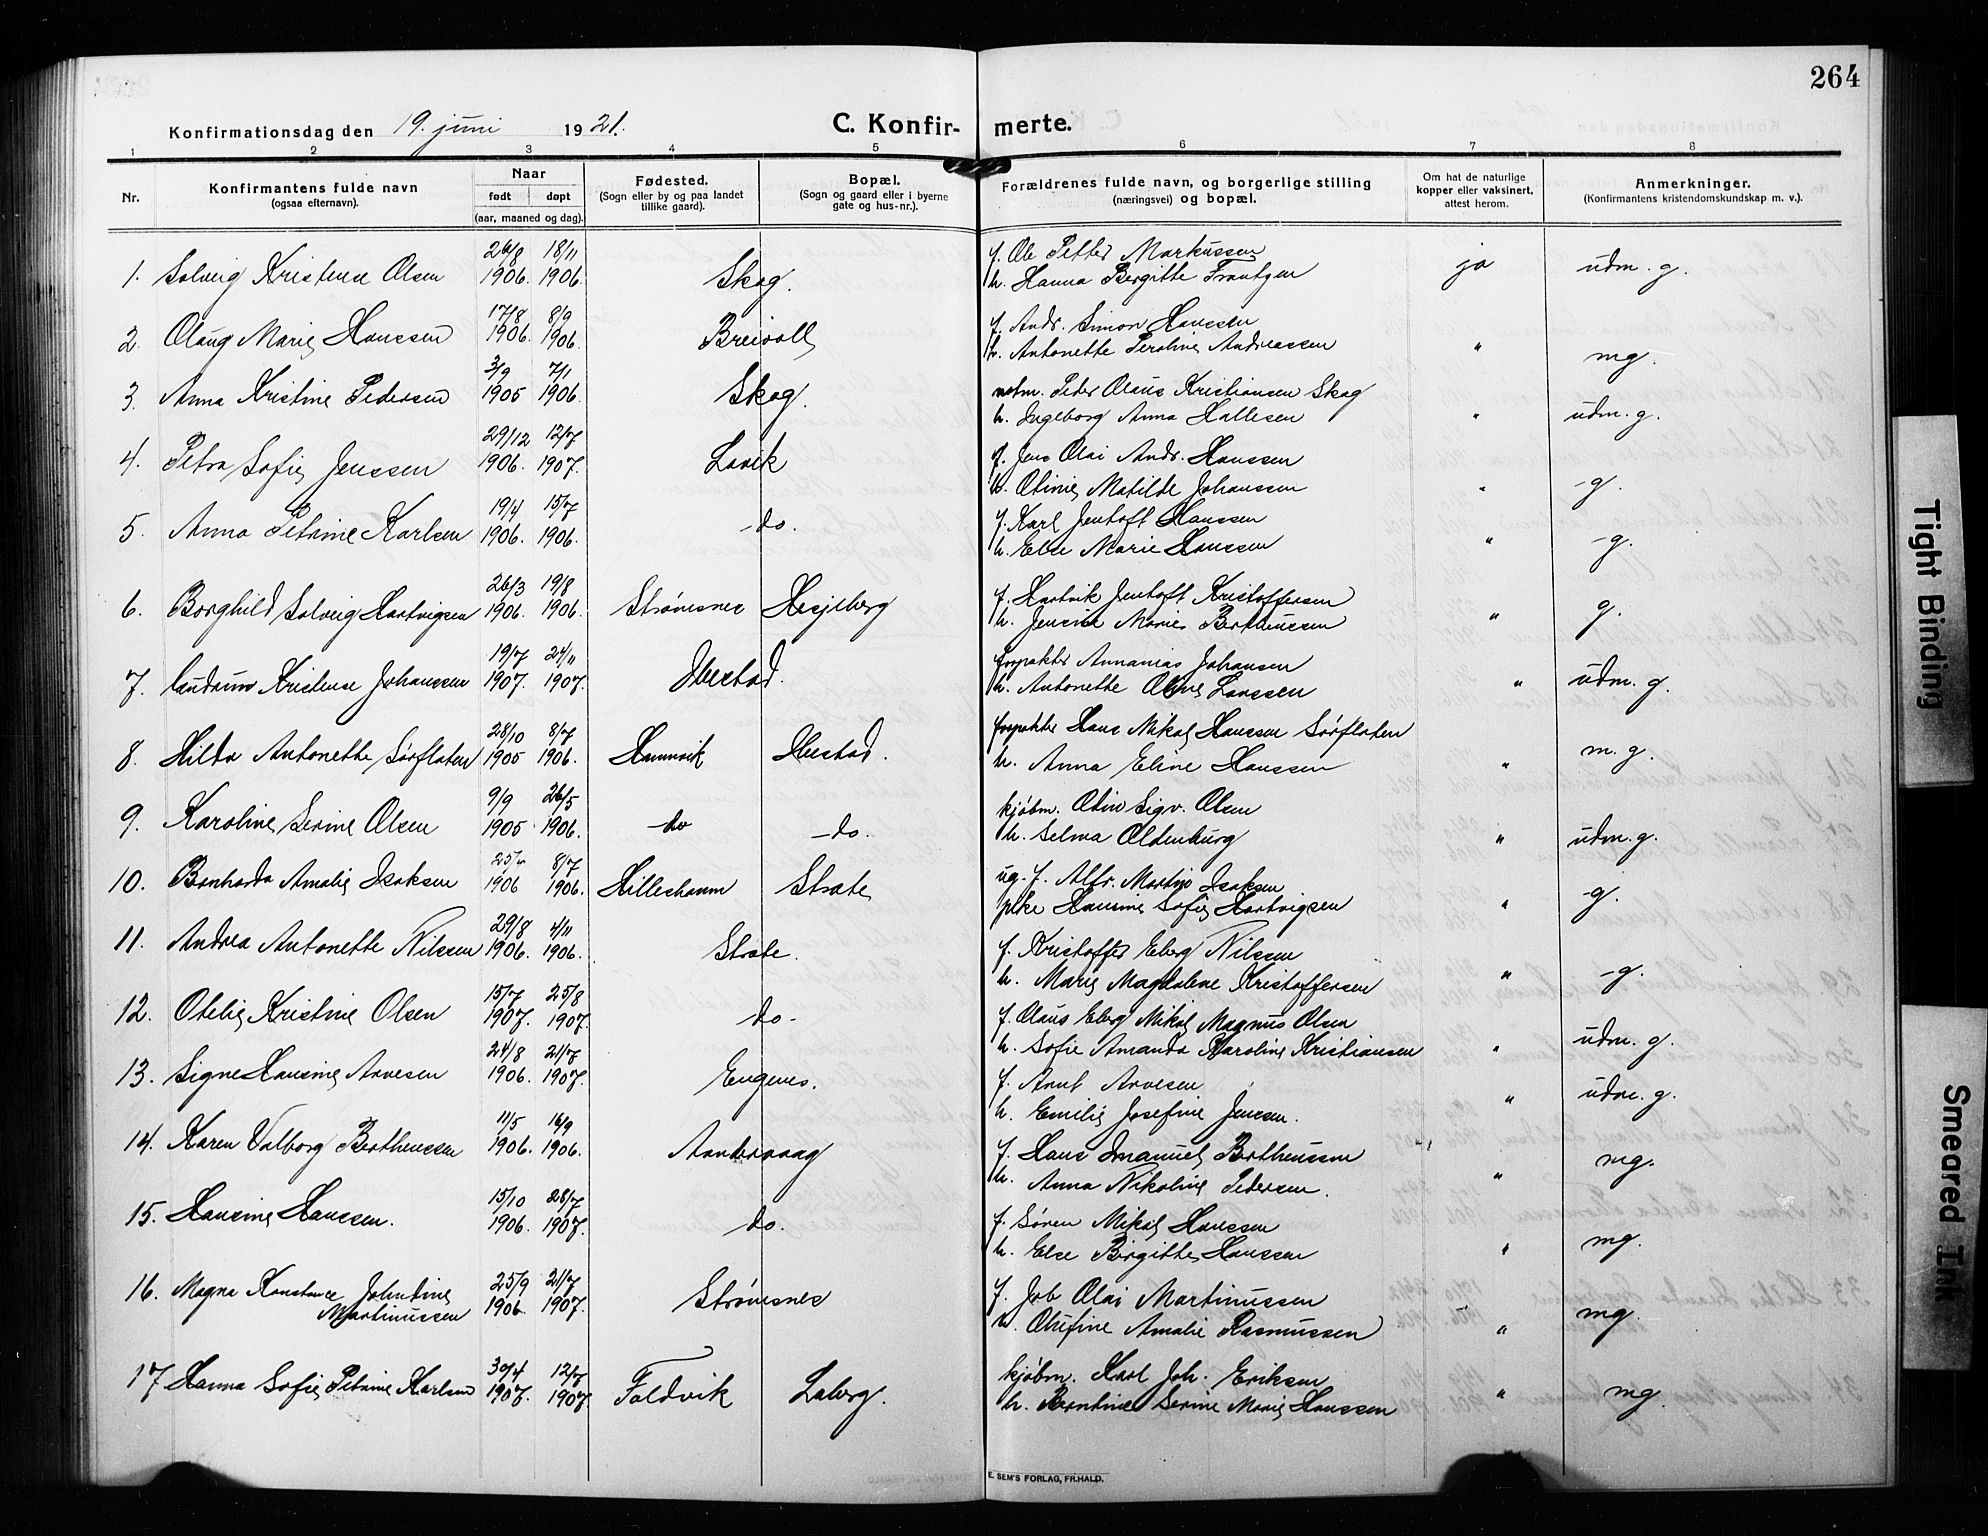 264
Konfirmationsdag den 19. juni 1921.
C. Konfirmerte.
1 2 3 4 5 6 7 8
Nr.
Konfirmantens fulde navn
(ogsaa efternavn).
Naar
født døpt
(aar, maaned og dag).
Fødested.
(Sogn eller by og paa landet
tillike gaard).
Bopæl.
(Sogn og gaard eller i byerne
gate og hus-nr.).
Forældrenes fulde navn, og borgerlige stilling
(næringsvei) og bopæl.
Om hat de naturlige
kopper eller vaksinert,
attest herom.
Anmerkninger.
(Konfirmantens kristendomskundskap m. v.).
26/8 18/11 f. Ole Petter Markussen
1. Solveig Kristense Olsen 1906. 1906. Skog. h. Hanna Bergitte Frantzen ja udm. g.
17/8 8/9 f. Andr. Simon Hanssen
2. Olaug Marie Hanssen 1906. 1906. Breivoll h. Antonette Peroline Andreassen " mg.
3/9 7/1 notm. Peder Olaus Kristiansen Skog
3. Anna Kristine Pedersen 1905 1906. Skog. h. Ingeborg Anna Hallesen " udm. g.
29/12 12/7 f. Jens Olai Andr. Hanssen
4. Petra Sofie Jenssen 1906. 1907. Lavik h. Otinie Matilde Johanssen " -g.
19/4 15/7 f. Karl Jentoft Hanssen
5. Anna Petrine Karlsen 1906. 1906. -do. h. Else Marie Hanssen " -g.
26/3 19/8 f. Hartvik Jentoft Kristoffersen
6. Borghild Solveig Hartvigsen 1906. 1906. Strømsnes Hesjeberg h. Jensine Marie Bertheussen " g.
19/7 24/11 forpakter Annanias Johansen
7. Kristense Johanssen 1907. 1907. Ibestad. h. Antonette Oline Larssen " udm. g.
28/10 8/7 forpakter Hans Mikal Hanssen Sørfloten
8. Hilda Antonette Sørfloten 1905 1906. Hamnvik Ibestad. h. Anna Eline Hanssen " m. g.
9/9 26/5 kjøbm. Otin Sigv. Olsen
9. Karoline Serine Olsen 1905 1906. -do -do. h. Selma Oldenburg " udm. g.
8/7 ug. f. Alfr. Martin Isaksen
10. Bonharda Amalie Isaksen 1906 1906. Hilleshamn Strate pike Hansine Sofie Hartvigsen " -g.
29/8 4/11 f. Kristoffer Eberg Nilssen
11. Andrea Antonette Nilssen 1906. 1906. Strate. h. Marie Magdalene Kristoffersen " -g.
15/7 25/8 f. Olaus Eberg Mikal Magnus Olsen
12. Otelie Kristine Olsen 1907. 1907. do- h. Sofie Amanda Karoline Kristiansen " udm. g.
24/8 21/7 f. Arnt Arvesen
13. Signe Hansine Arvesen 1906. 1907. Engenes. h. Emilie Josefine Jenssen. " udm. g.
11/5 16/9 f. Hans Imanuel Bertheussen
14. Karen Valborg Bertheussen 1906. 1906. Aandervaag h. Anna Nikoline Pedersen. " mg.
15/10 28/7 f. Søren Mikal Hanssen
15. Hansine Hanssen. 1906. 1907. do. h. Else Birgitte Hanssen " mg.
25/9 21/7 f. Job Olai Martinussen
16. Magna Konstance Johntine Martinussen 1906. 1907. Strømsnes h. Olufine Amalie Rasmussen " mg.
30/4 12/7 kjøbm. Karl Joh. Eriksen
17 Hanna Sofie Petrine Karlsen 1907. 1907. Foldvik Laberg. h. Berntine Serine Marie Hanssen " mg.
E. SEM'S FORLAG, FR.HALD.
Tight Binding
Smeared Ink